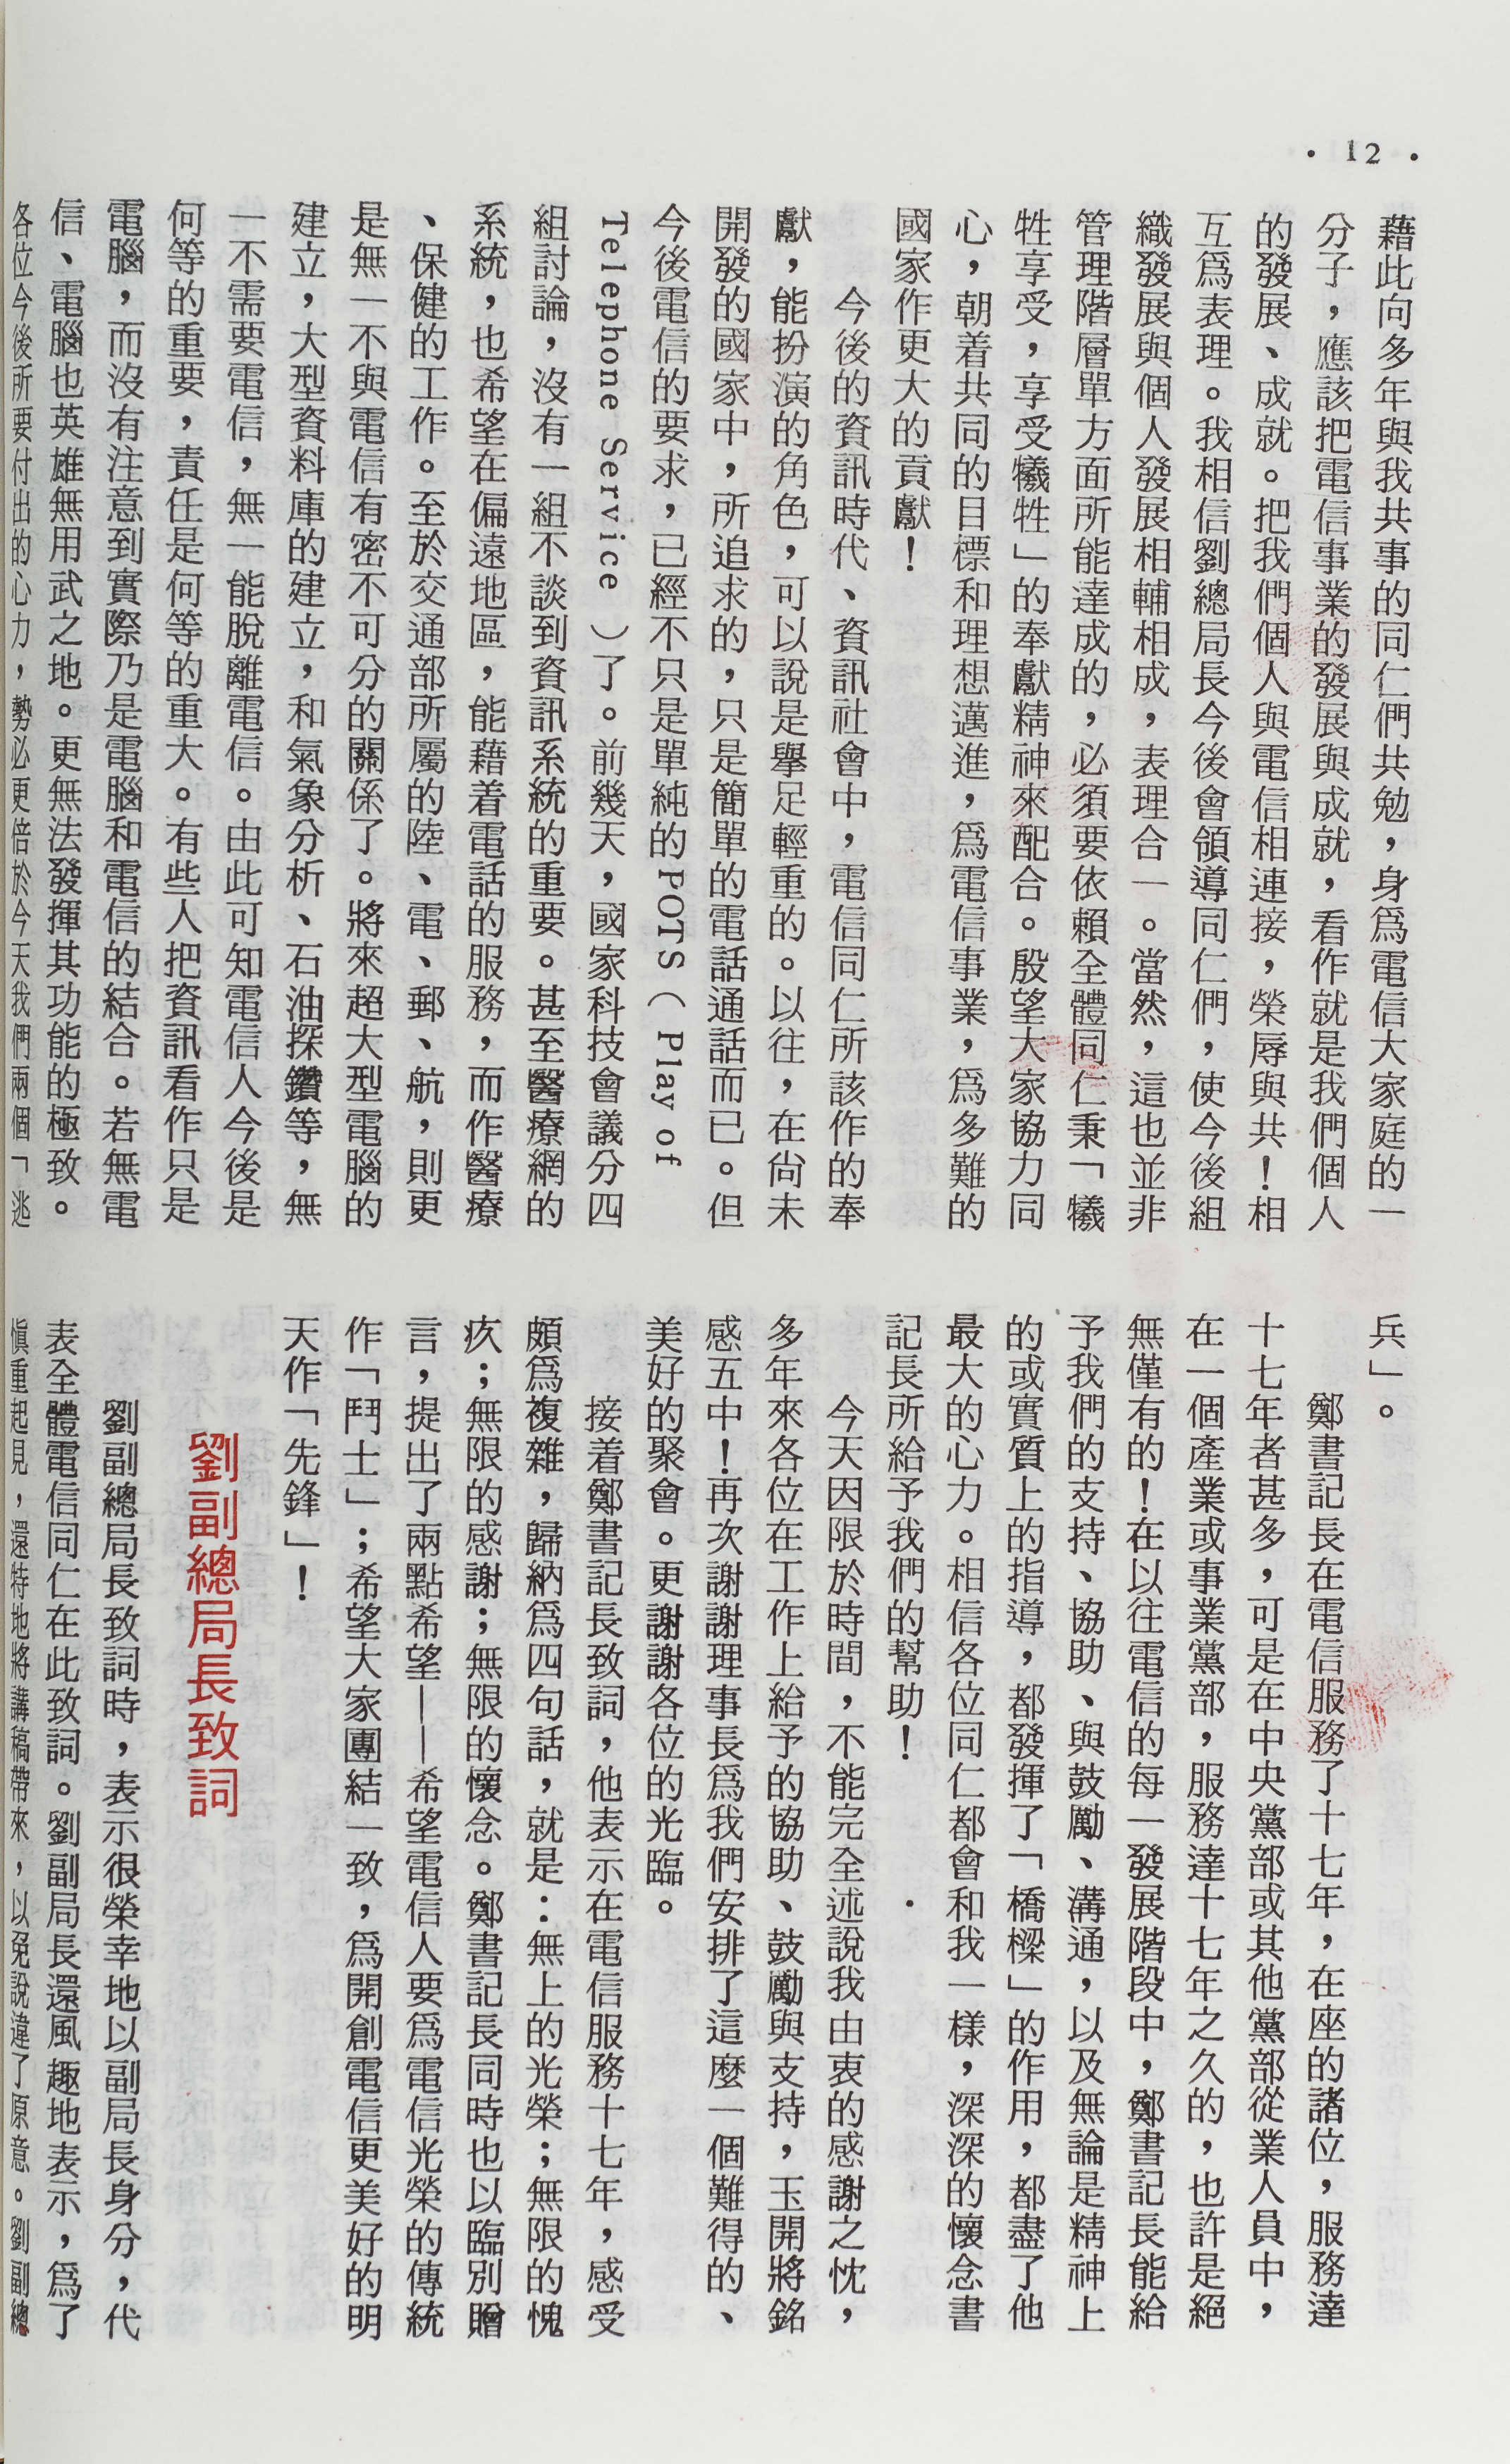 • 12 •
藉此向多年與我共事的同仁們共勉，身爲電信大家庭的一
分子，應該把電信事業的發展與成就，看作就是我們個人
的發展、成就。把我們個人與電信相連接，榮辱與共！相
互爲表理。我相信劉總局長今後會領導同仁們，使今後組
織發展與個人發展相輔相成，表理合一。當然，這也並非
管理階層單方面所能達成的，必須要依賴全體同仁秉「犧
牲享受，享受犧牲」的奉獻精神來配合。殷望大家協力同
心，朝着共同的目標和理想邁進，爲電信事業，爲多難的
國家作更大的貢獻！
今後的資訊時代、資訊社會中，電信同仁所該作的奉
獻，能扮演的角色，可以說是舉足輕重的。以往，在尚未
開發的國家中，所追求的，只是簡單的電話通話而已。但
今後電信的要求，已經不只是單純的POTS（Play of
Telephone Service ）了。前幾天，國家科技會議分四
組討論，沒有一組不談到資訊系統的重要。甚至醫療網的
系統，也希望在偏遠地區，能藉着電話的服務，而作醫療
、保健的工作。至於交通部所屬的陸、電、郵、航，則更
是無一不與電信有密不可分的關係了。將來超大型電腦的
建立，大型資料庫的建立，和氣象分析、石油探鑽等，無
一不需要電信，無一能脫離電信。由此可知電信人今後是
何等的重要，責任是何等的重大。有些人把資訊看作只是
電腦，而沒有注意到實際乃是電腦和電信的結合。若無電
信、電腦也英雄無用武之地。更無法發揮其功能的極致。
各位今後所要付出的心力，勢必更倍於今天我們兩個「逃
兵」。
鄭書記長在電信服務了十七年，在座的諸位，服務達
十七年者甚多，可是在中央黨部或其他黨部從業人員中，
在一個產業或事業黨部，服務達十七年之久的，也許是絕
無僅有的！在以往電信的每一發展階段中，鄭書記長能給
予我們的支持、協助、與鼓勵、溝通，以及無論是精神上
的或實質上的指導，都發揮了「橋樑」的作用，都盡了他
最大的心力。相信各位同仁都會和我一樣，深深的懷念書
記長所給予我們的幫助！
今天因限於時間，不能完全述說我由衷的感謝之忱，
多年來各位在工作上給予的協助、鼓勵與支持，玉開將銘
感五中！再次謝謝理事長爲我們安排了這麼一個難得的、
美好的聚會。更謝謝各位的光臨。
接着鄭書記長致詞，他表示在電信服務十七年，感受
頗爲複雜，歸納爲四句話，就是：無上的光榮；無限的愧
疚；無限的感謝；無限的懷念。鄭書記長同時也以臨別贈
言，提出了兩點希望——希望電信人要爲電信光榮的傳統
作「鬥士」；希望大家團結一致，爲開創電信更美好的明
天作「先鋒」！
劉副總局長致詞
劉副總局長致詞時，表示很榮幸地以副局長身分，代
表全體電信同仁在此致詞。劉副局長還風趣地表示，爲了
愼重起見，還特地將講稿帶來，以免說違了原意。劉副總